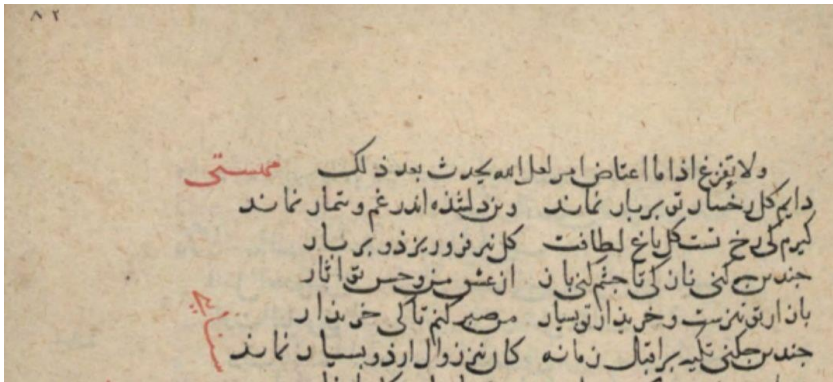 ٨٢
ولا تفزع اذا ما اعتاض امر لعل الله يحدث بعد ذلك مهستی
دایم گل رخسار تو بر بار نماند وین دلشده اندر غم و تیمار نماند
گیرم که رخ تست گل باغ لطافت گل نیز فرو ریزد و بر بار
چندین چه کنی ناز که تا چشم کنی باز از عشق من و حسن تو اثار
بازار تو تیزست و خریدار تو بسیار من صبر کنم تا که خریدار
چندین چه کنی تکیه بر اقبال زمانه کان نیز زوال ارد و بسیار نماند